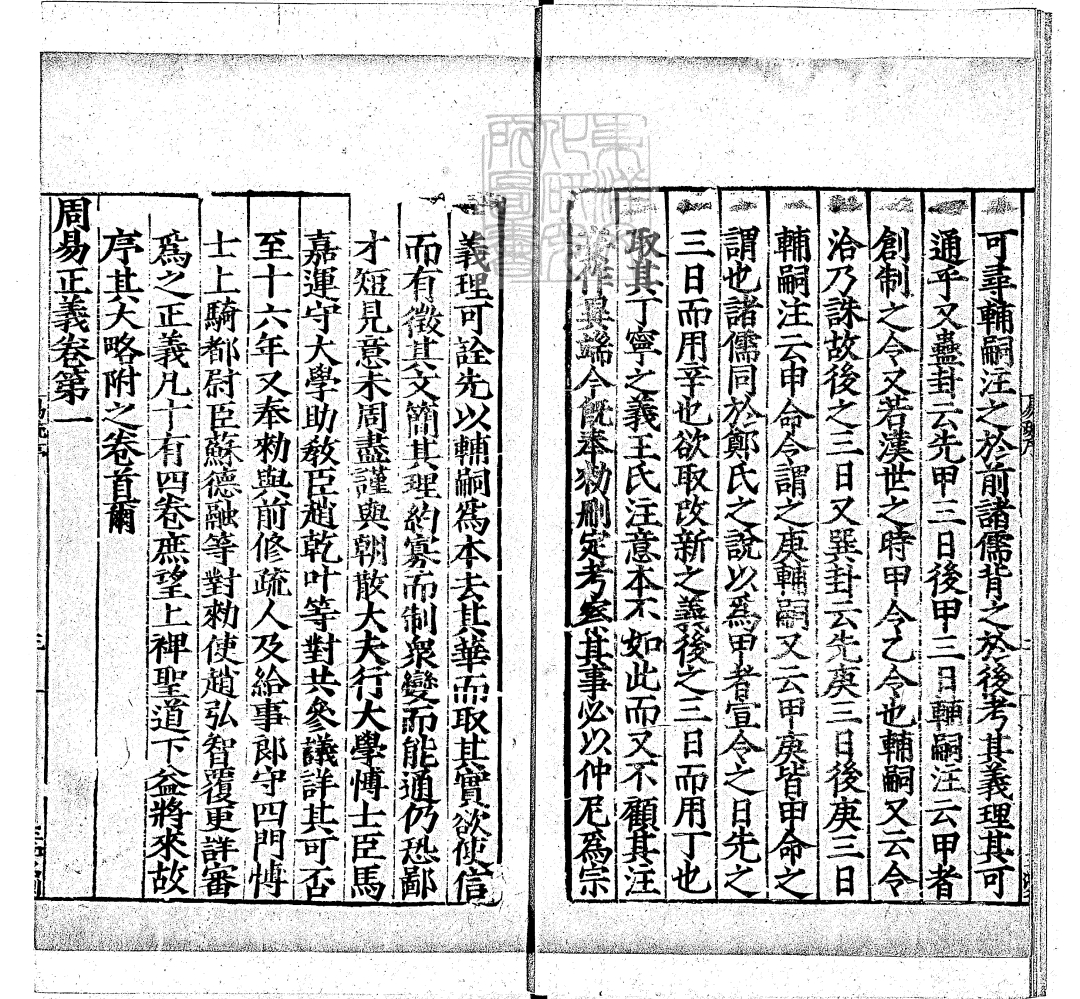 可尋輔嗣注之於前諸儒背之於後考其義理其可
通乎又蠱卦云先甲三日後甲三日輔嗣注云甲者
創制之令又若漢世之時甲令乙令也輔嗣又云令
洽乃誅故後之三日又巽卦云先庚三日後庚三日
輔嗣注云申命令謂之庚輔嗣又云甲庚皆申命之
謂也諸儒同於鄭氏之說以為甲者宣令之日先之
三日而用辛也欲取改新之義後之三日而用丁也
取其丁寧之義王氏注意本不如此而又不顧其注
妄作異端今旣奉勑刪定考察其事必以仲尼為宗
義理可詮先以輔嗣為本去其華而取其實欲使信
而有徵其文簡其理約寡而制眾變而能通仍恐鄙
才短見意未周盡謹與朝散大夫行大學博士臣馬
嘉運守大學助教臣趙乾叶等對共參議詳其可否
至十六年又奉勑與前修疏人及給事郎守四門博
士上騎都尉臣蘇德融等對勑使趙弘智覆更詳審
為之正義凡十有四卷庶望上裨聖道下益將來故
序其大略附之卷首爾
周易正義卷第一